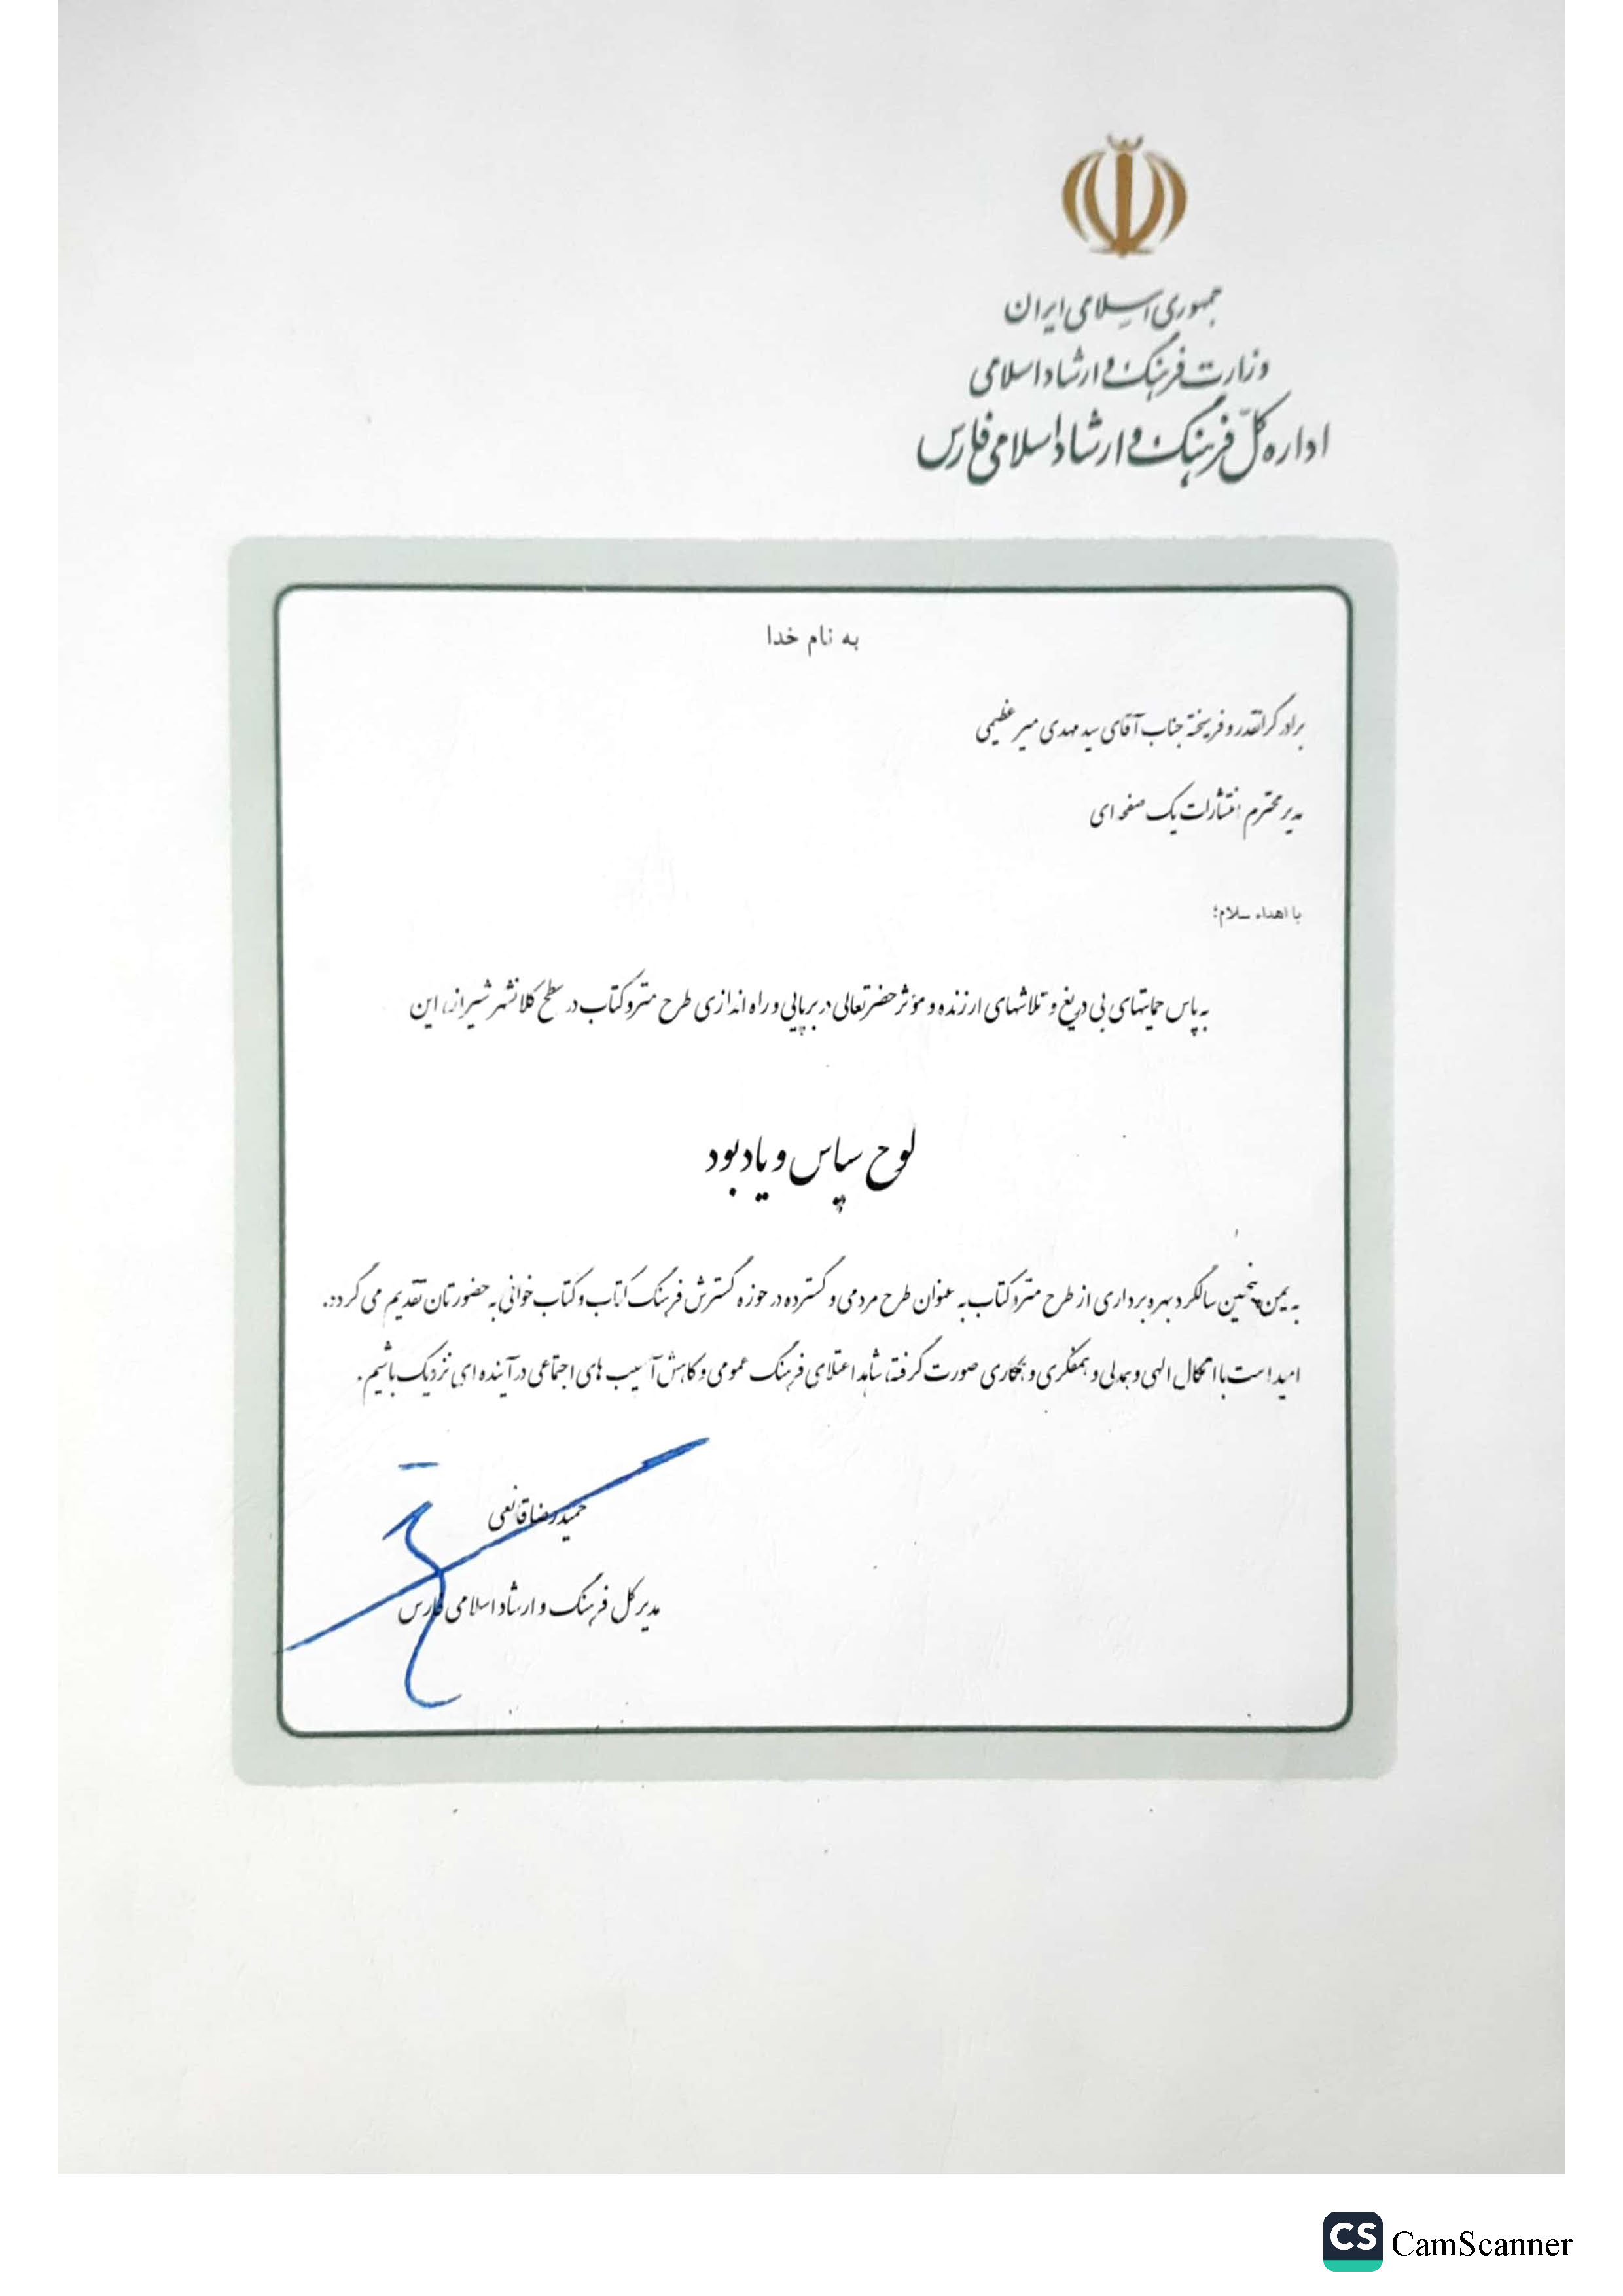 جمهوری اسلامی ایران
وزارت فرهنگ و ارشاد اسلامی
اداره کلّ فرهنگ و ارشاد اسلامی فارس
به نام خدا
برادر گرانقدر و فرهیخته جناب آقای سید مهدی میر عظیمی
مدیر محترم انتشارات یک صفحه ای
با اهداء سلام؛
به پاس حمایتهای بی دریغ و تلاشهای ارزنده و مؤثر حضرتعالی در برپایی و راه اندازی طرح مترو کتاب در سطح کلانشهر شیراز، این
لوح سپاس و یادبود
به یمن پنجمین سالگرد بهره برداری از طرح مترو کتاب به عنوان طرح مردمی و گسترده در حوزه گسترش فرهنگ کتاب و کتاب خوانی به حضورتان تقدیم می گردد.
امید است با اتکال الهی و همدلی و همفکری و همکاری صورت گرفته، شاهد اعتلای فرهنگ عمومی و کاهش آسیب های اجتماعی در آینده ای نزدیک باشیم.
حمیدرضا قانعی
مدیرکل فرهنگ و ارشاد اسلامی فارس
CS CamScanner